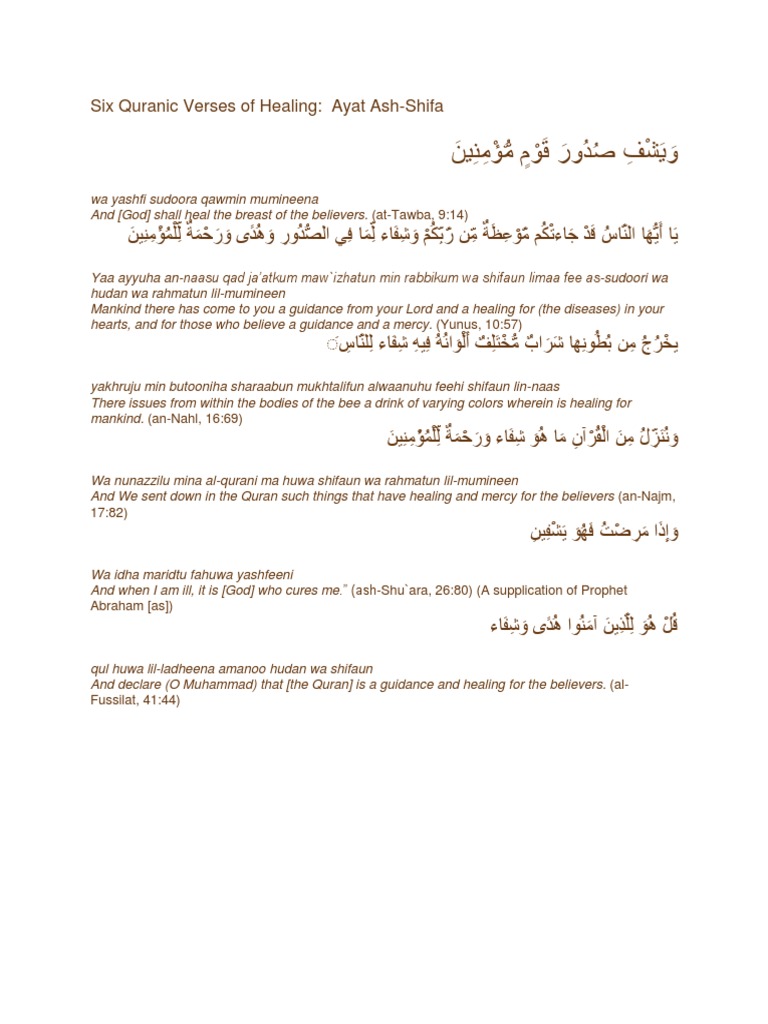 Six Quranic Verses of Healing: Ayat Ash-Shifa
وَيَشْفِ صُدُورَ قَوْمٍ مُّؤْمِنِينَ
wa yashfi sudoora qawmin mumineena
And [God] shall heal the breast of the believers. (at-Tawba, 9:14)
يَا أَيُّهَا النَّاسُ قَدْ جَاءتْكُم مَّوْعِظَةٌ مِّن رَّبِّكُمْ وَشِفَاء لِّمَا فِي الصُّدُورِ وَهُدًى وَرَحْمَةٌ لِّلْمُؤْمِنِينَ
Yaa ayyuha an-naasu qad ja’atkum maw`izhatun min rabbikum wa shifaun limaa fee as-sudoori wa
hudan wa rahmatun lil-mumineen
Mankind there has come to you a guidance from your Lord and a healing for (the diseases) in your
hearts, and for those who believe a guidance and a mercy. (Yunus, 10:57)
يخْرُجُ مِن بُطُونِها شَرَابٌ مُّخْتَلِفٌ أَلْوَانُهُ فِيهِ شِفَاء لِلنَّاسِ
yakhruju min butooniha sharaabun mukhtalifun alwaanuhu feehi shifaun lin-naas
There issues from within the bodies of the bee a drink of varying colors wherein is healing for
mankind. (an-Nahl, 16:69)
وَنُنَزِّلُ مِنَ الْقُرْآنِ مَا هُوَ شِفَاء وَرَحْمَةٌ لِّلْمُؤْمِنِينَ
Wa nunazzilu mina al-qurani ma huwa shifaun wa rahmatun lil-mumineen
And We sent down in the Quran such things that have healing and mercy for the believers (an-Najm,
17:82)
وَإِذَا مَرِضْتُ فَهُوَ يَشْفِينِ
Wa idha maridtu fahuwa yashfeeni
And when I am ill, it is [God] who cures me.” (ash-Shu`ara, 26:80) (A supplication of Prophet
Abraham [as])
قُلْ هُوَ لِلَّذِينَ آمَنُوا هُدًى وَشِفَاء
qul huwa lil-ladheena amanoo hudan wa shifaun
And declare (O Muhammad) that [the Quran] is a guidance and healing for the believers. (al-
Fussilat, 41:44)